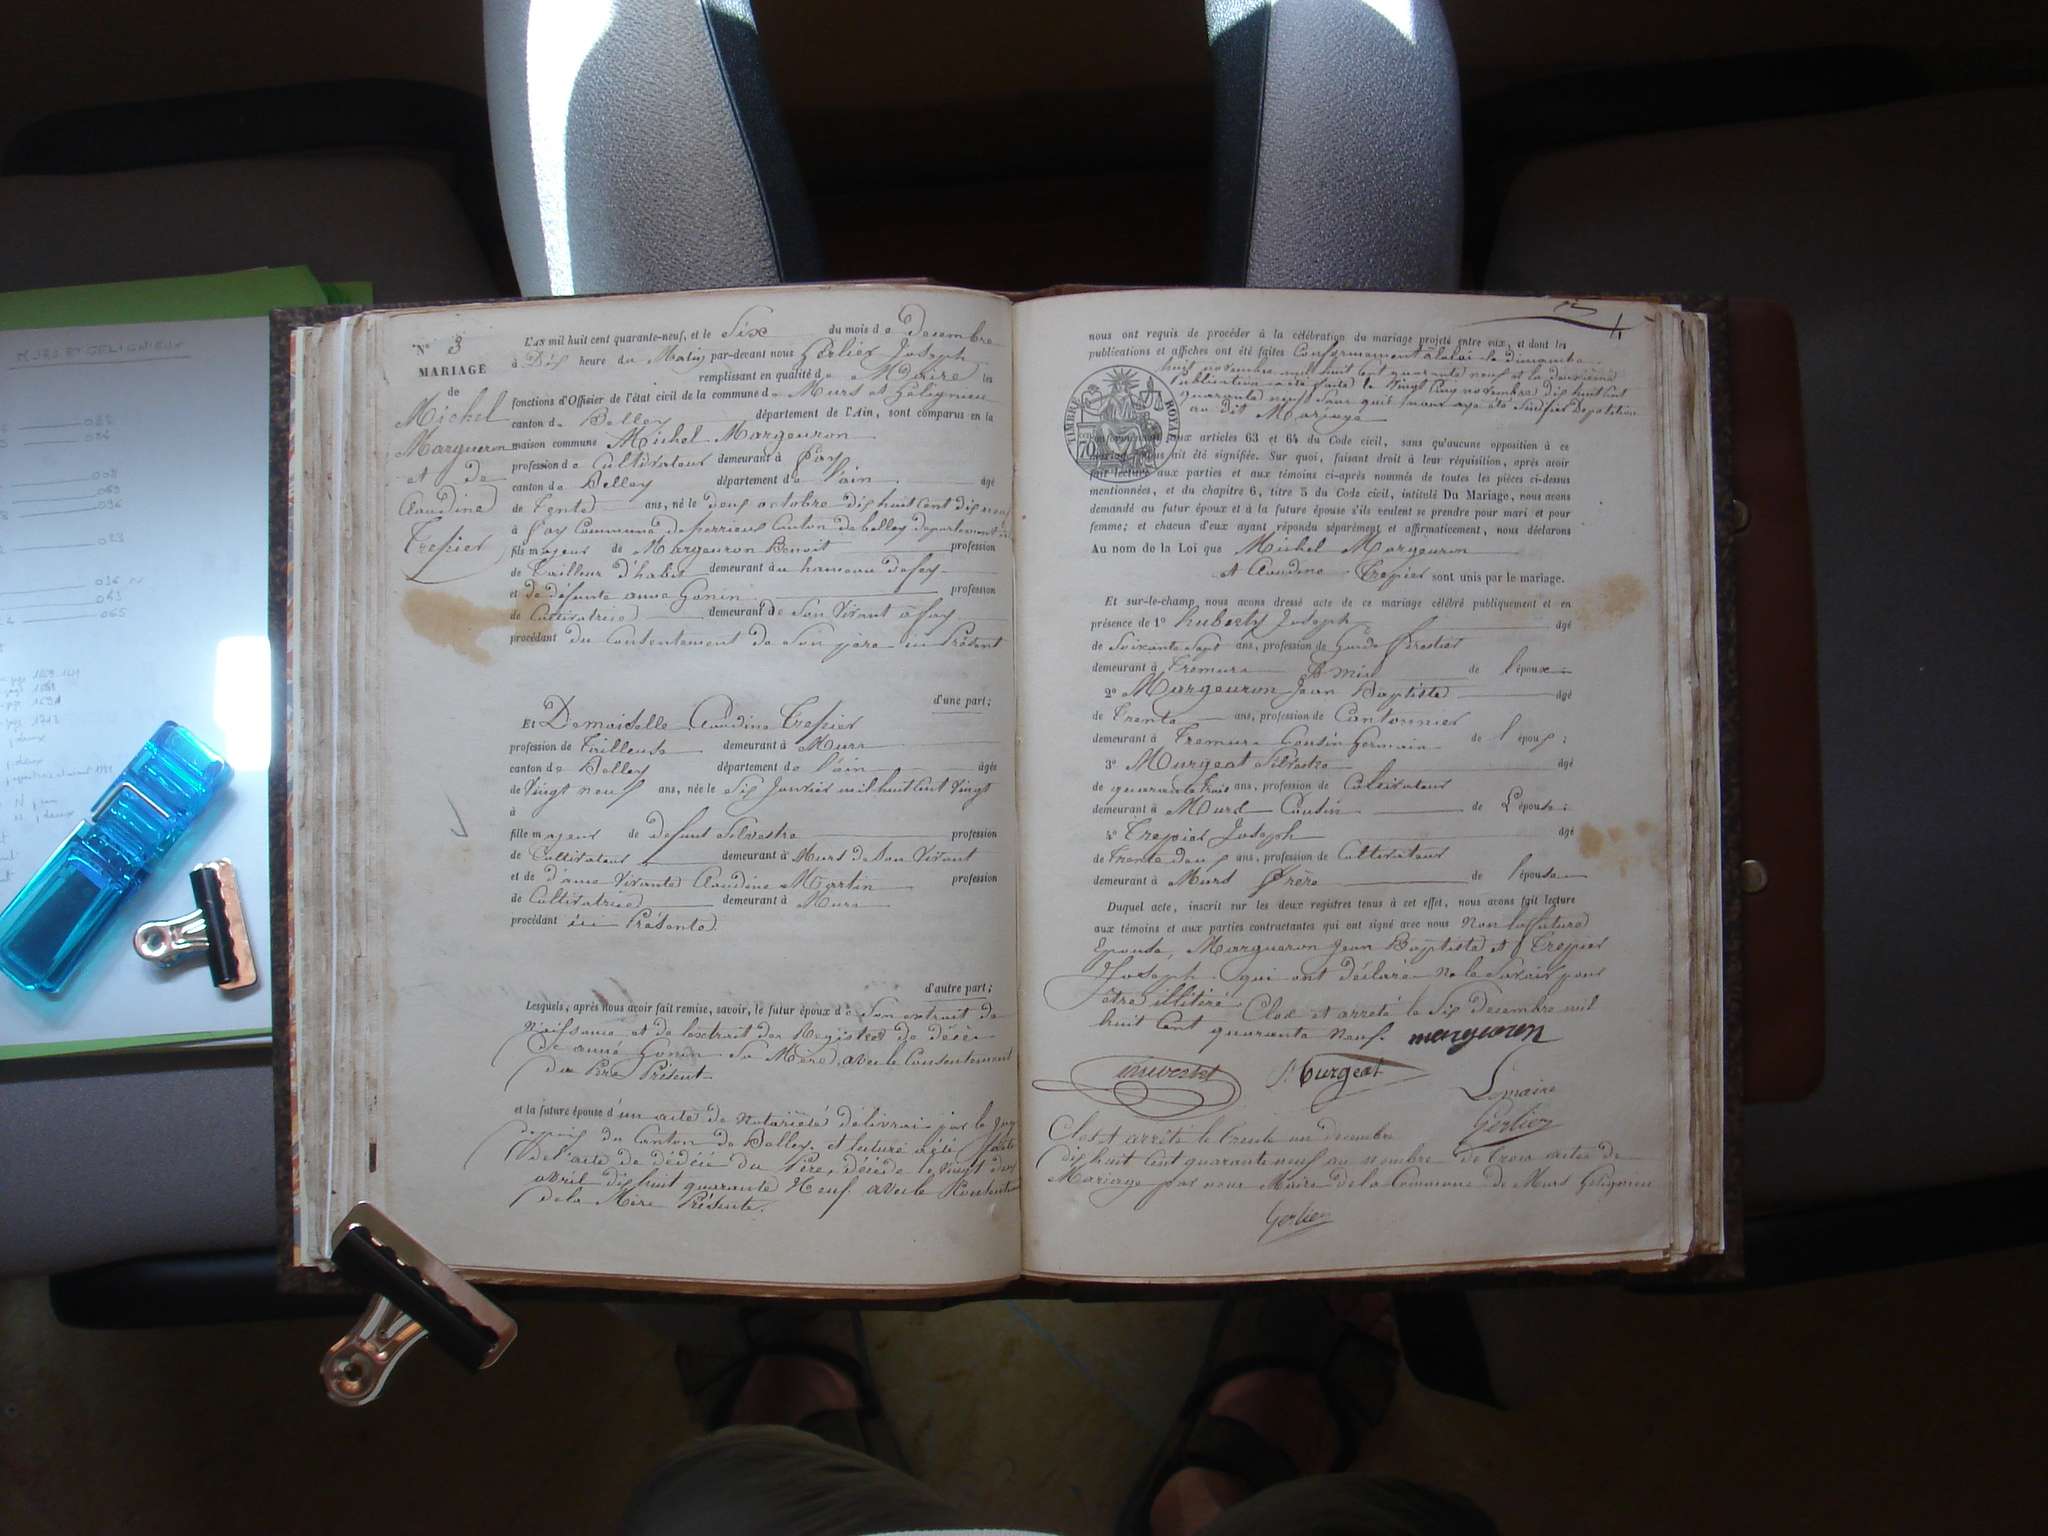 MURS ET GELIGNIEUX
N° 3
MARIAGE
de
Michel
Margueron
et de
Claudine
Trepier
L'an mil huit cent quarante-neuf, et le Six du mois de Decembre
à Dix heure du Matin par-devant nous Gerlier Joseph
remplissant en qualité de Maire les
fonctions d'Officier de l'état civil de la commune de Murs et Gélignieu
canton de Belley département de l'Ain, sont comparus en la
maison commune Michel Margeuron
profession de Cultivateur demeurant à Fay
canton de Belley département de l'ain âgé
de Trente ans, né le deux octobre dix huit cent dix neuf
à Fay Commune de perrieux Canton de belley departement
fils majeur de Margeuron Benoit profession
de Tailleur d'habit demeurant au hameau defay
et de défunte anne Gonin profession
de Cultivatrice demeurant de Son Vivant à fay
procédant du Consentement de Son père ici Présent
d'une part;
Et Demoiselle Claudine Trepier
profession de demeurant à Murs
canton de Belley département de l'ain âgée
de Vingt neuf ans, née le Six Janvier mil huit Cent Vingt
à
fille majeur de defunt Silvestre profession
de Cultivateur demeurant à Murs de Son Vivant
et de d'ame Vivante Claudine Martin profession
de Cultivatrice demeurant à Murs
procédant ici Présente.
d'autre part;
Lesquels, après nous avoir fait remise, savoir, le futur époux de Son extrait de
Naissance et de lextrait des Registres de décès
de anne Gonin Sa Mère avec le Consentement
du Père Présent
et la future épouse d'un acte de Notariété délivrai par le Juge
depaix du Canton de Belley, et lecture a été faite
de l'acte de dédcié du Père, décède le Vingt deux
avril dix huit quarante Neuf. avec le Consentement
de la Mère Présente.
4
nous ont requis de procéder à la célébration du mariage projeté entre eux, et dont les
publications et affiches ont été faites Conformement à la loi le dimanche
huit novembre mil huit Cent quarante neuf et la deuxième
Publication a été faite le Vingt Cinq novembre dix huit Cent
quarante neuf Sans quil
au dit Mariage
TIMBRE ROYAL
70
conformément aux articles 63 et 64 du Code civil, sans qu'aucune opposition à ce
mariage nous ait été signifiée. Sur quoi, faisant droit à leur réquisition, après avoir
fait lecture aux parties et aux témoins ci-après nommés de toutes les pièces ci-dessus
mentionnées, et du chapitre 6, titre 5 du Code civil, intitulé Du Mariage, nous avons
demandé au futur époux et à la future épouse s'ils veulent se prendre pour mari et pour
femme; et chacun d'eux ayant répondu séparément et affirmativement, nous déclarons
Au nom de la Loi que Michel Margeuron
et Claudine Trepier sont unis par le mariage.
Et sur-le-champ nous avons dressé acte de ce mariage célébré publiquement et en
présence de 1° Joseph âgé
de Soixante Sept ans, profession de Garde Forestier
demeurant à Tremurs Amis de l'époux
2° Margeuron Jean Baptiste âgé
de Trente ans, profession de Cantonnier
demeurant à Tremurs Cousin Germain de l'époux;
3° Murgeat Silvestre âgé
de quarante trois ans, profession de Cultivateur
demeurant à Murs Cousin de L'épouse;
4° Trepier Joseph âgé
de Trente deux ans, profession de Cultivateur
demeurant à Murs Frère de l'épouse
Duquel acte, inscrit sur les deux registres tenus à cet effet, nous avons fait lecture
aux témoins et aux parties contractantes qui ont signé avec nous Non la future
Epouse, Margueron Jean Baptiste et Trepier
Joseph qui ont déclaré ne le Savoir pour
être illitéré Clos et arreté le Six Decembre mil
huit Cent quarante Neuf. margueron
Lemaire
Gerlier
Clos et arrêté le Trente un decembre
dix huit Cent quarante neuf au nombre de trois actes de
Mariage par nous Maire de la Commune de Murs Gelignieu
Gerlier